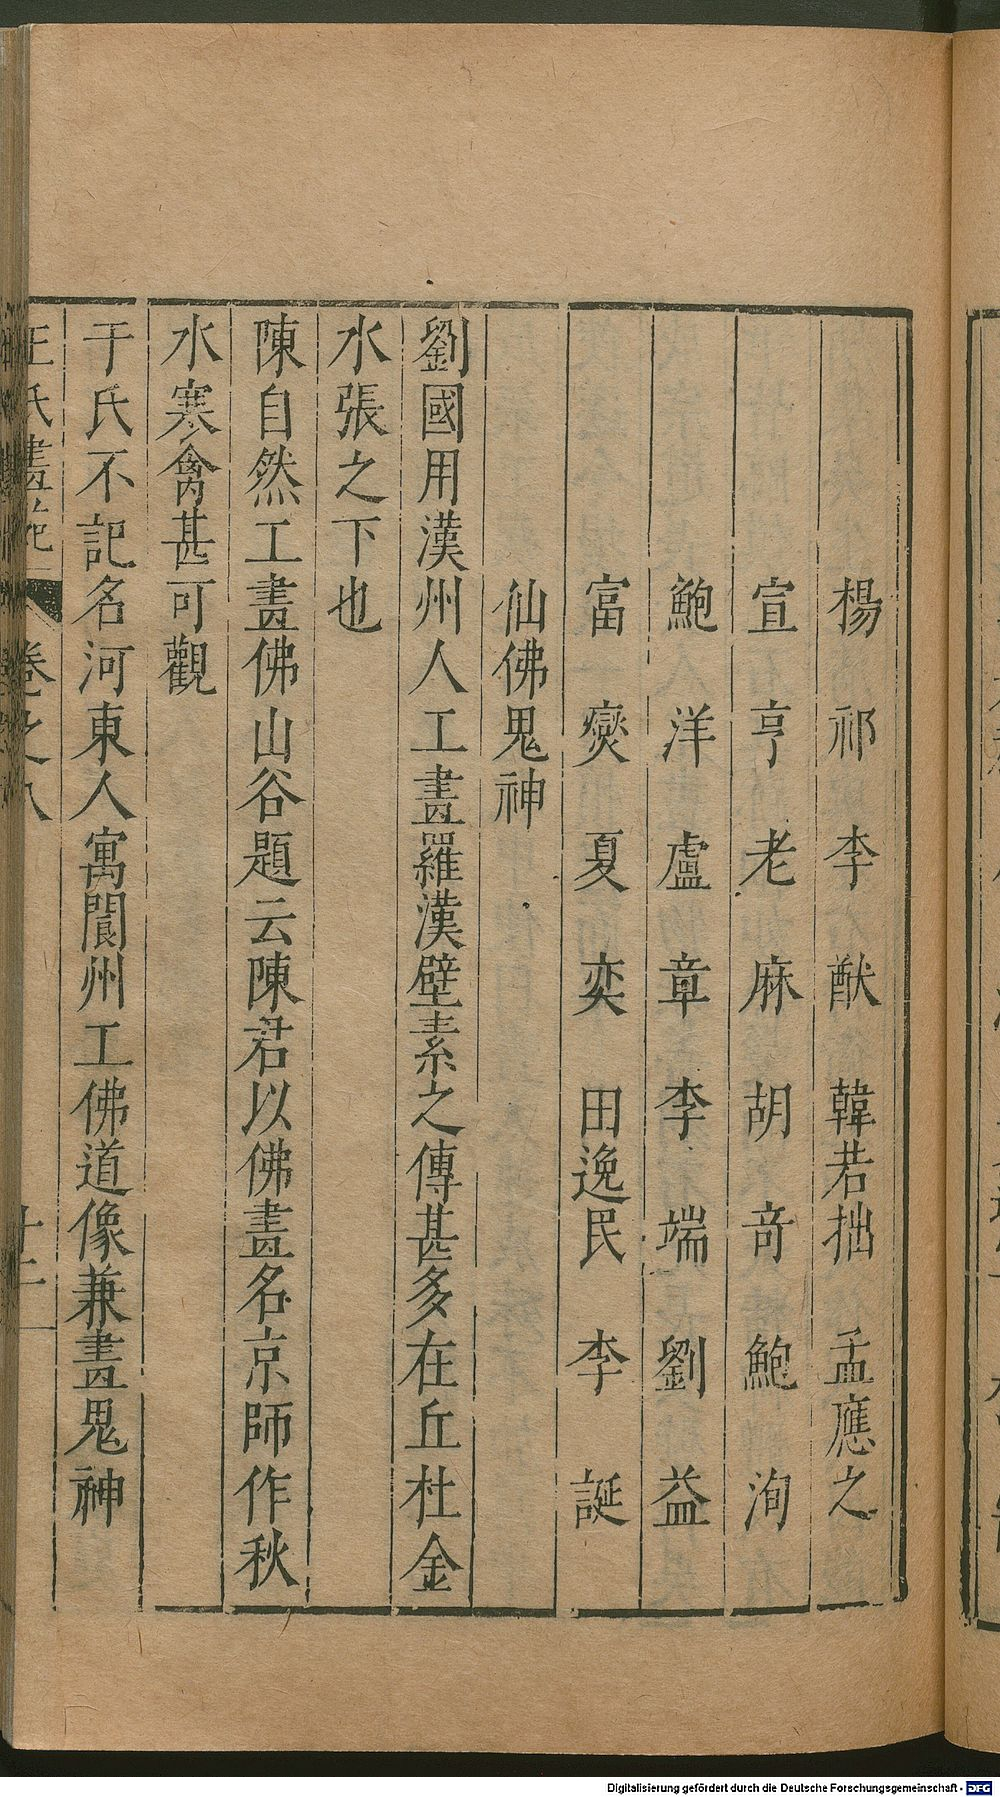 楊祁 李猷 韓若拙 孟應之
宣亨 老麻 胡奇 鮑洵
鮑洋 盧章 李端 劉益
富爕 夏奕 田逸民 李誕
仙佛鬼神
劉國用漢州人工畫羅漢壁素之傳甚多在丘杜金
水張之下也
陳自然工畫佛山谷題云陳君以佛畫名京師作秋
水寒禽甚可觀
于氏不記名河東人寓閬州工佛道像兼畫鬼神
王氏畫苑 卷之八 十二
Digitalisierung gefördert durch die Deutsche Forschungsgemeinschaft - DFG